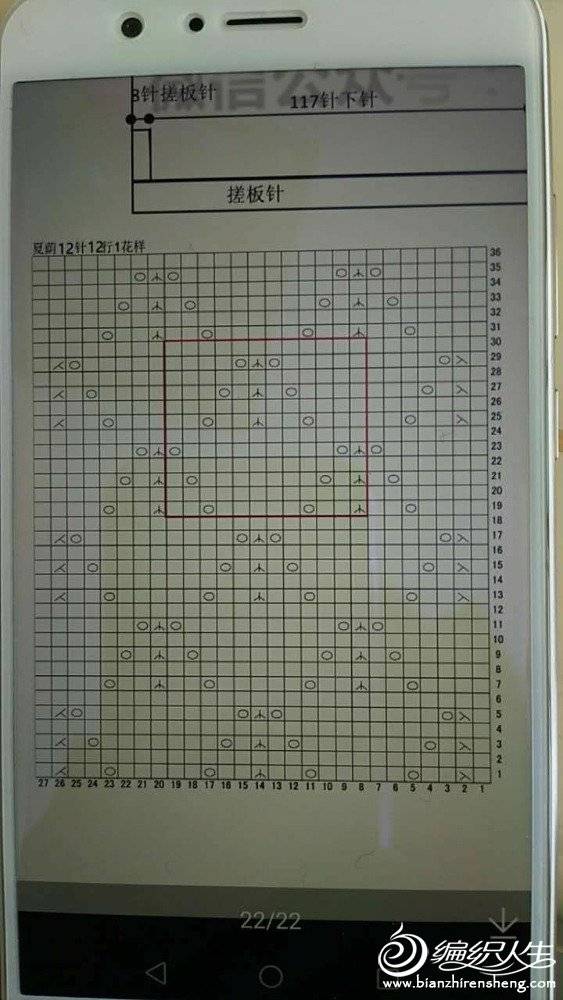 微信公众号:
8针搓板针
117针下针
搓板针
夏茵12针12行1花样
36
35
34
33
32
31
30
29
28
27
26
25
24
23
22
21
20
19
18
17
16
15
14
13
12
11
10
9
8
7
6
5
4
3
2
1
27 26 25 24 23 22 21 20 19 18 17 16 15 14 13 12 11 10 9 8 7 6 5 4 3 2 1
22/22
编织人生
www.bianzhirensheng.com